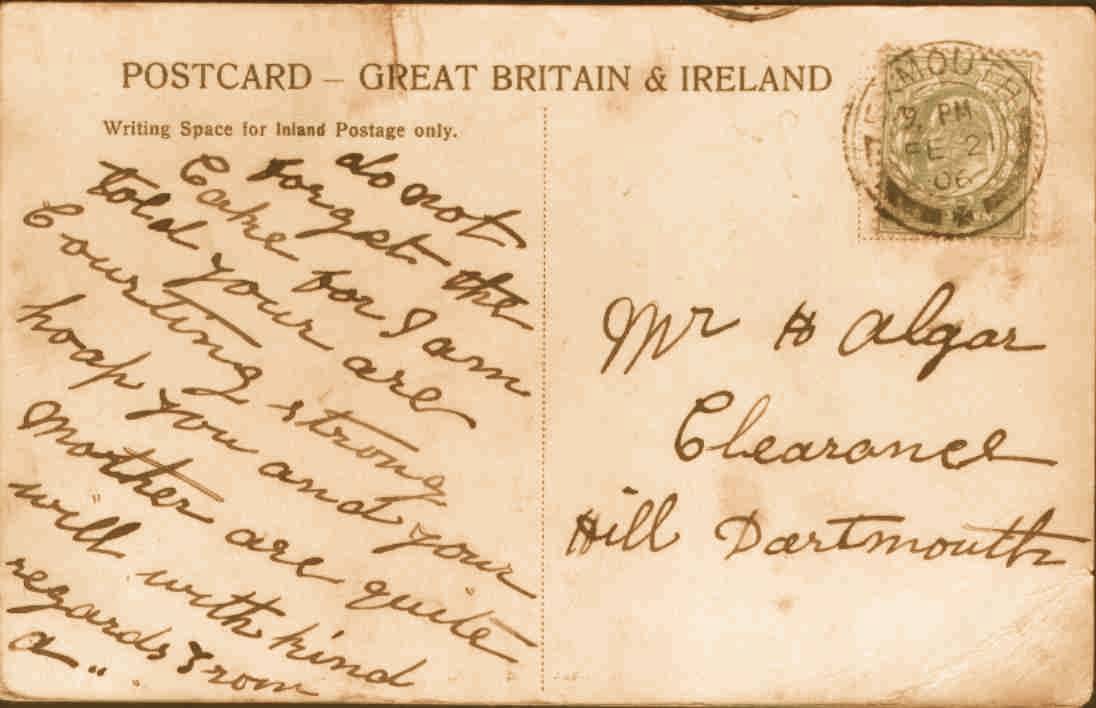 POSTCARD – GREAT BRITAIN & IRELAND
Writing Space for Inland Postage only.
do not
forget the
Cake for I am
told your are
Courting strong
hoap you and your
Mother are quite
will with kind
regards from
a"
MOUTH
PM
FE 21
06
Mr H Algar
Clearance
Hill Dartmouth